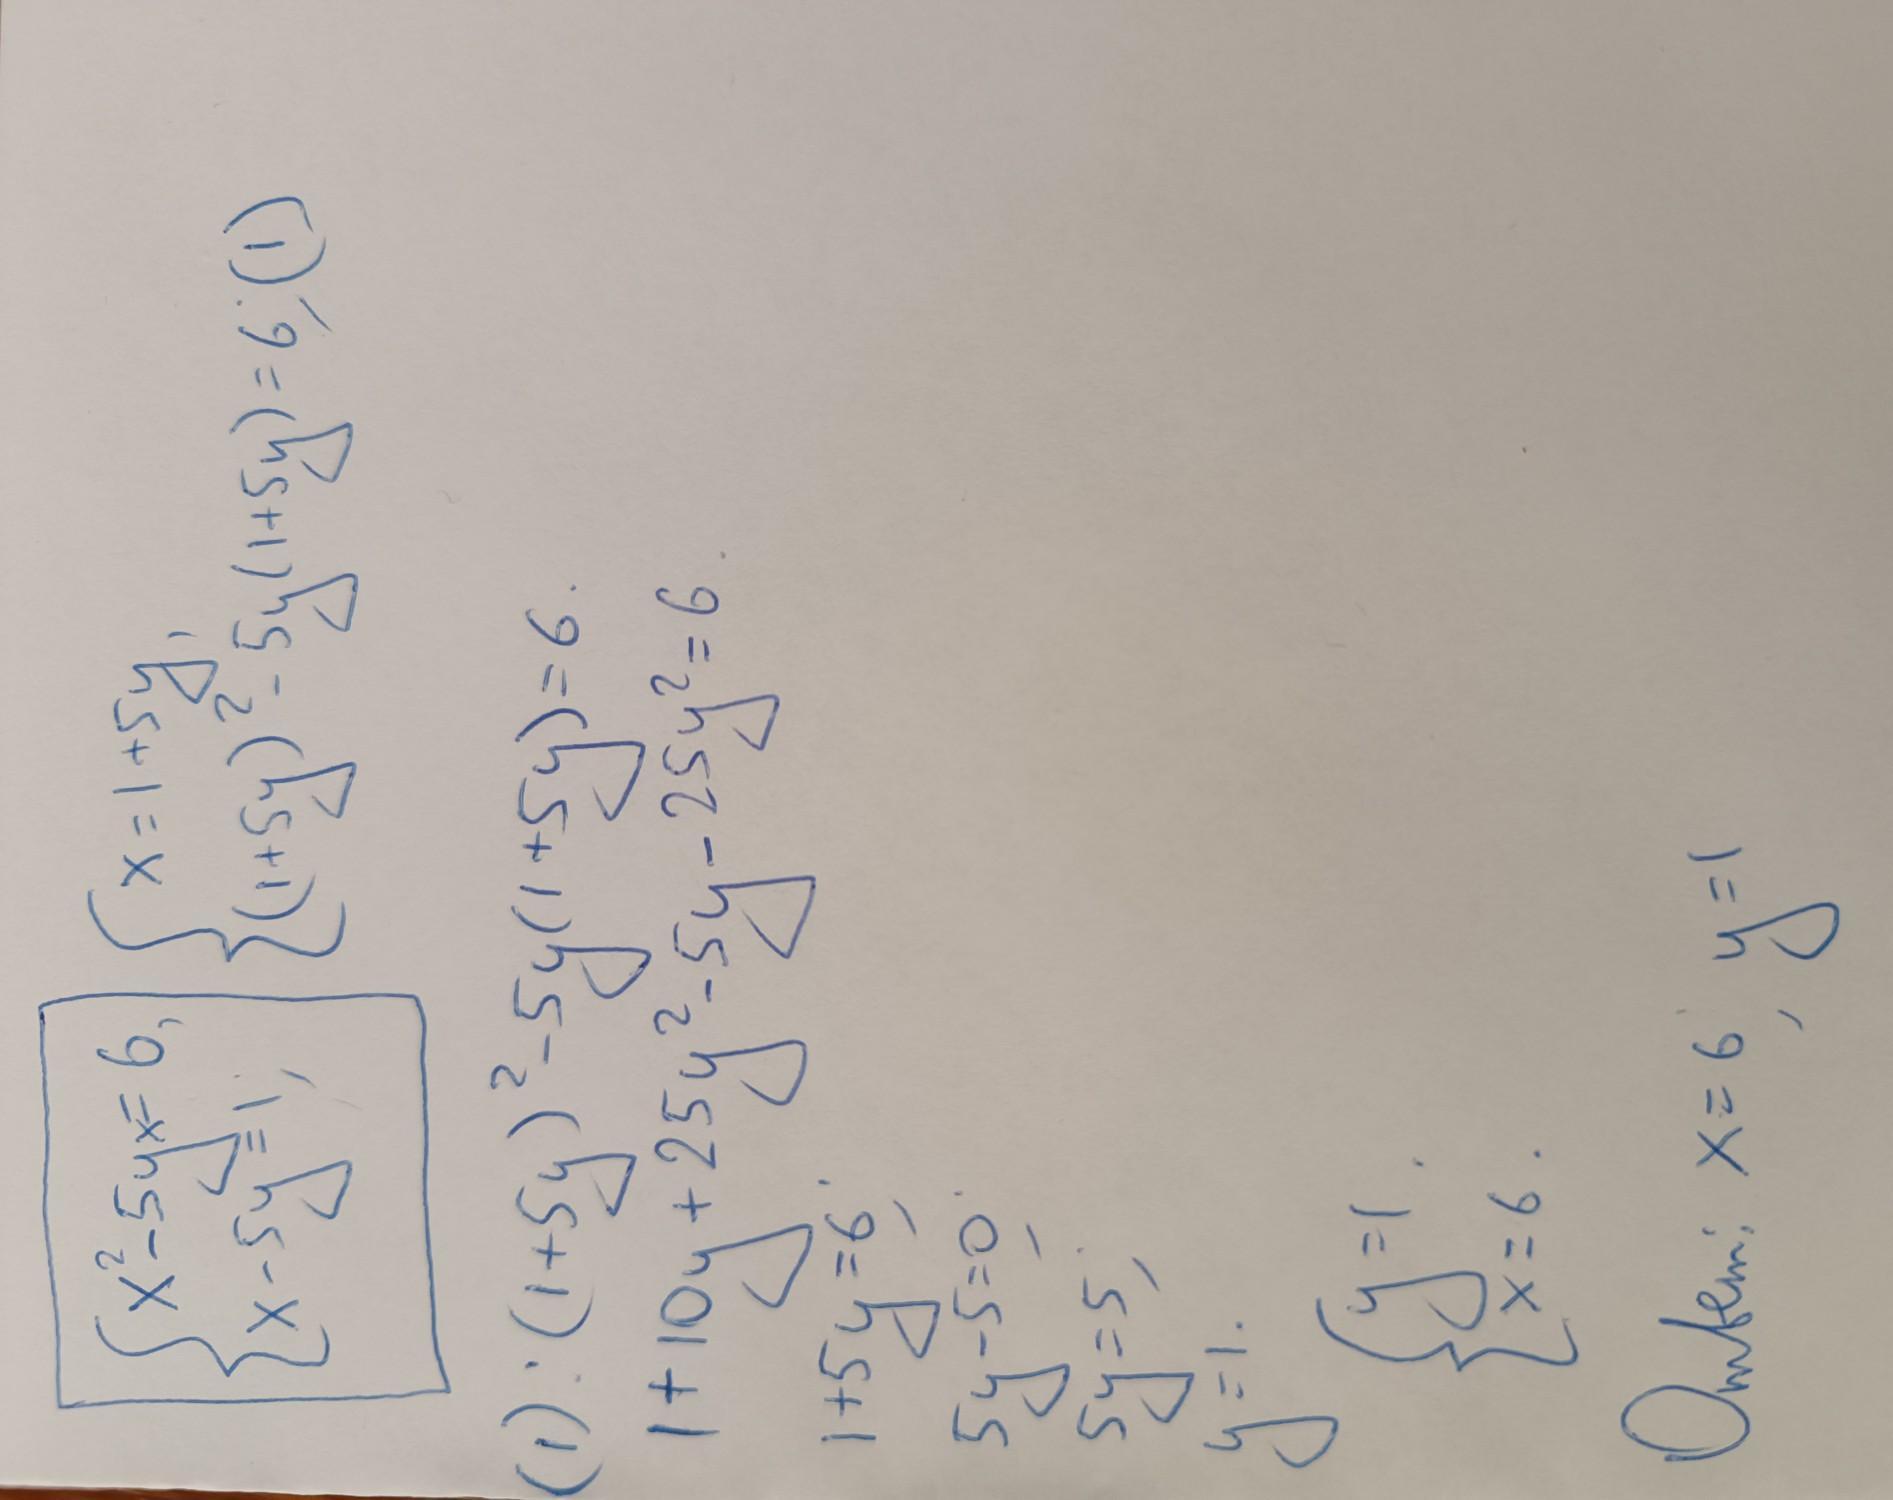 { x² - 5yx = 6,
x - 5y = 1;
{ x = 1 + 5y,
(1+5y)² - 5y(1+5y) = 6; (1)
(1): (1+5y)² - 5y(1+5y) = 6.
1 + 10y + 25y² - 5y - 25y² = 6.
1 + 5y = 6;
5y - 5 = 0;
5y = 5;
y = 1.
{ y = 1.
x = 6.
Ответ: x = 6, y = 1